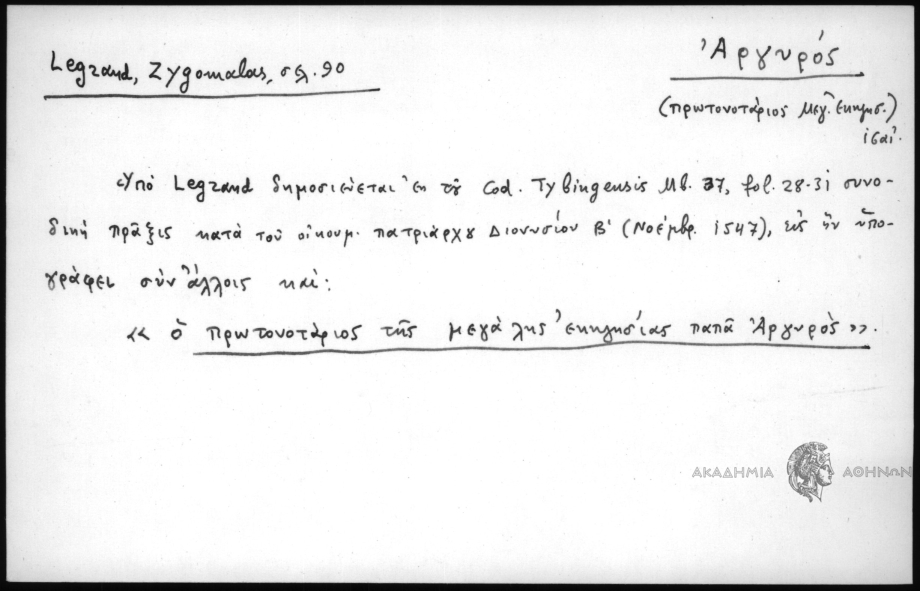 Legrand, Zygomalas, σελ. 90
Ἀργυρός
(πρωτονοτάριος Μεγ. Ἐκκλησ.)
ιςαί.
Ὑπό Legrand δημοσιεύεται ἐκ τοῦ Cod. Tybingensis Mb. 37, fol. 28-31 συνο-
δική πρᾶξις κατά τοῦ οἰκουμ. πατριάρχου Διονυσίου Β' (Νοέμβρ. 1547), εἰς ἥν ὑπο-
γράφει σύν ἄλλοις καί:
«ὁ πρωτονοτάριος τῆς μεγάλης ἐκκλησίας παπᾶ Ἀργυρὸς».
ΑΚΑΔΗΜΙΑ ΑΘΗΝΩΝ